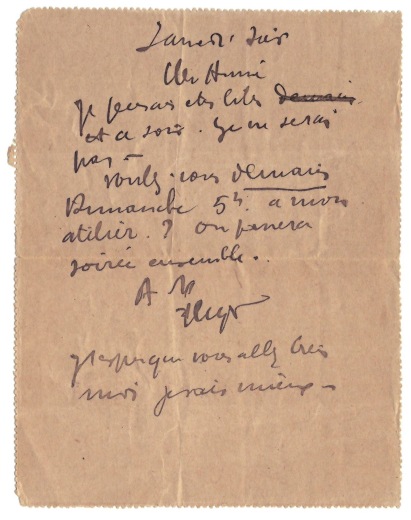 Samedi soir
Cher Ami
Je pensais être libre demain
et ce soir. Je ne serai
pas –
voulez-vous demain
Dimanche 5h. à mon
atelier.? on passera
soirée ensemble..
A V
J'espère que vous allez bien
moi je vais mieux –